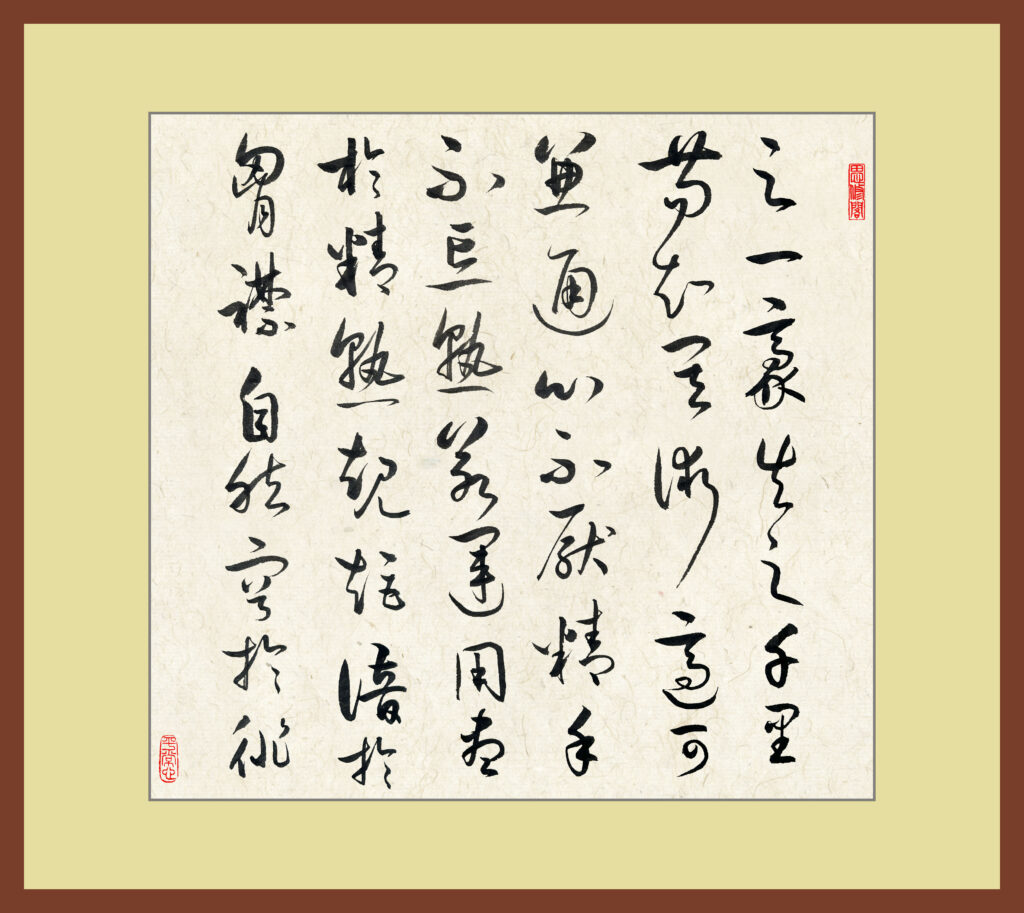 思修閣
之一豪失之千里
苟知其術適可
兼通心不厭精手
不忘熟若運用盡
於精熟規矩諳於
胷襟自然容於徘
平常心